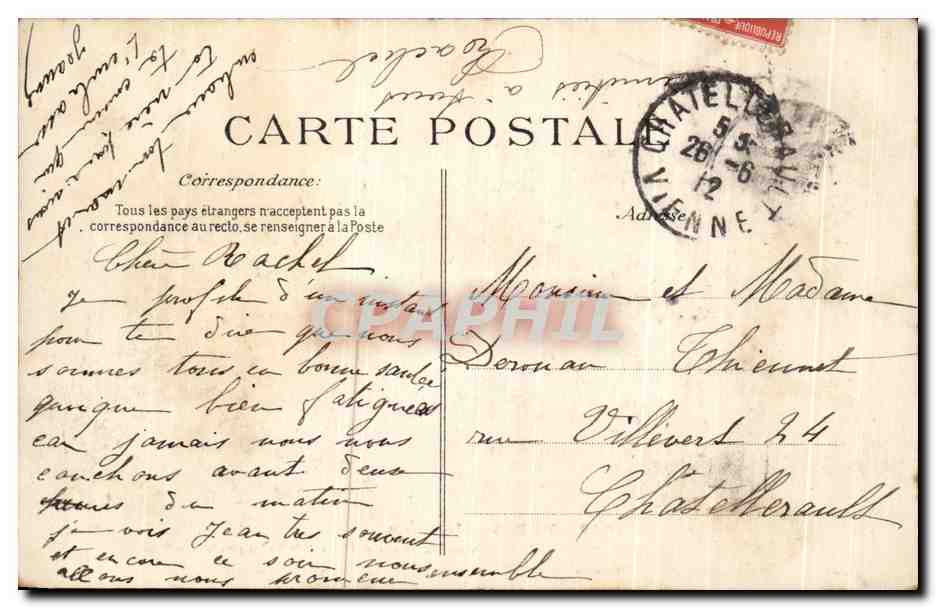 CARTE POSTALE
Correspondance:
Tous les pays étrangers n'acceptent pas la
correspondance au recto, se renseigner à la Poste
Adresse
CHATELLERAULT
26 - 6
12
VIENNE
CPAPHIL
Chère Rachel
Je profite d'un instant
pour te dire que nous
sommes tous en bonne santée
quoique bien fatigués
car jamais nous nous
couchons avant deux
heures du matin
je vois Jean très souvent
et encore ce soir nous
allons nous promener ensemble
Monsieur et Madame
Derouau Thiennet
rue Villevert 24
Châtellerault
amitiés à tous
Rachel
ta mère